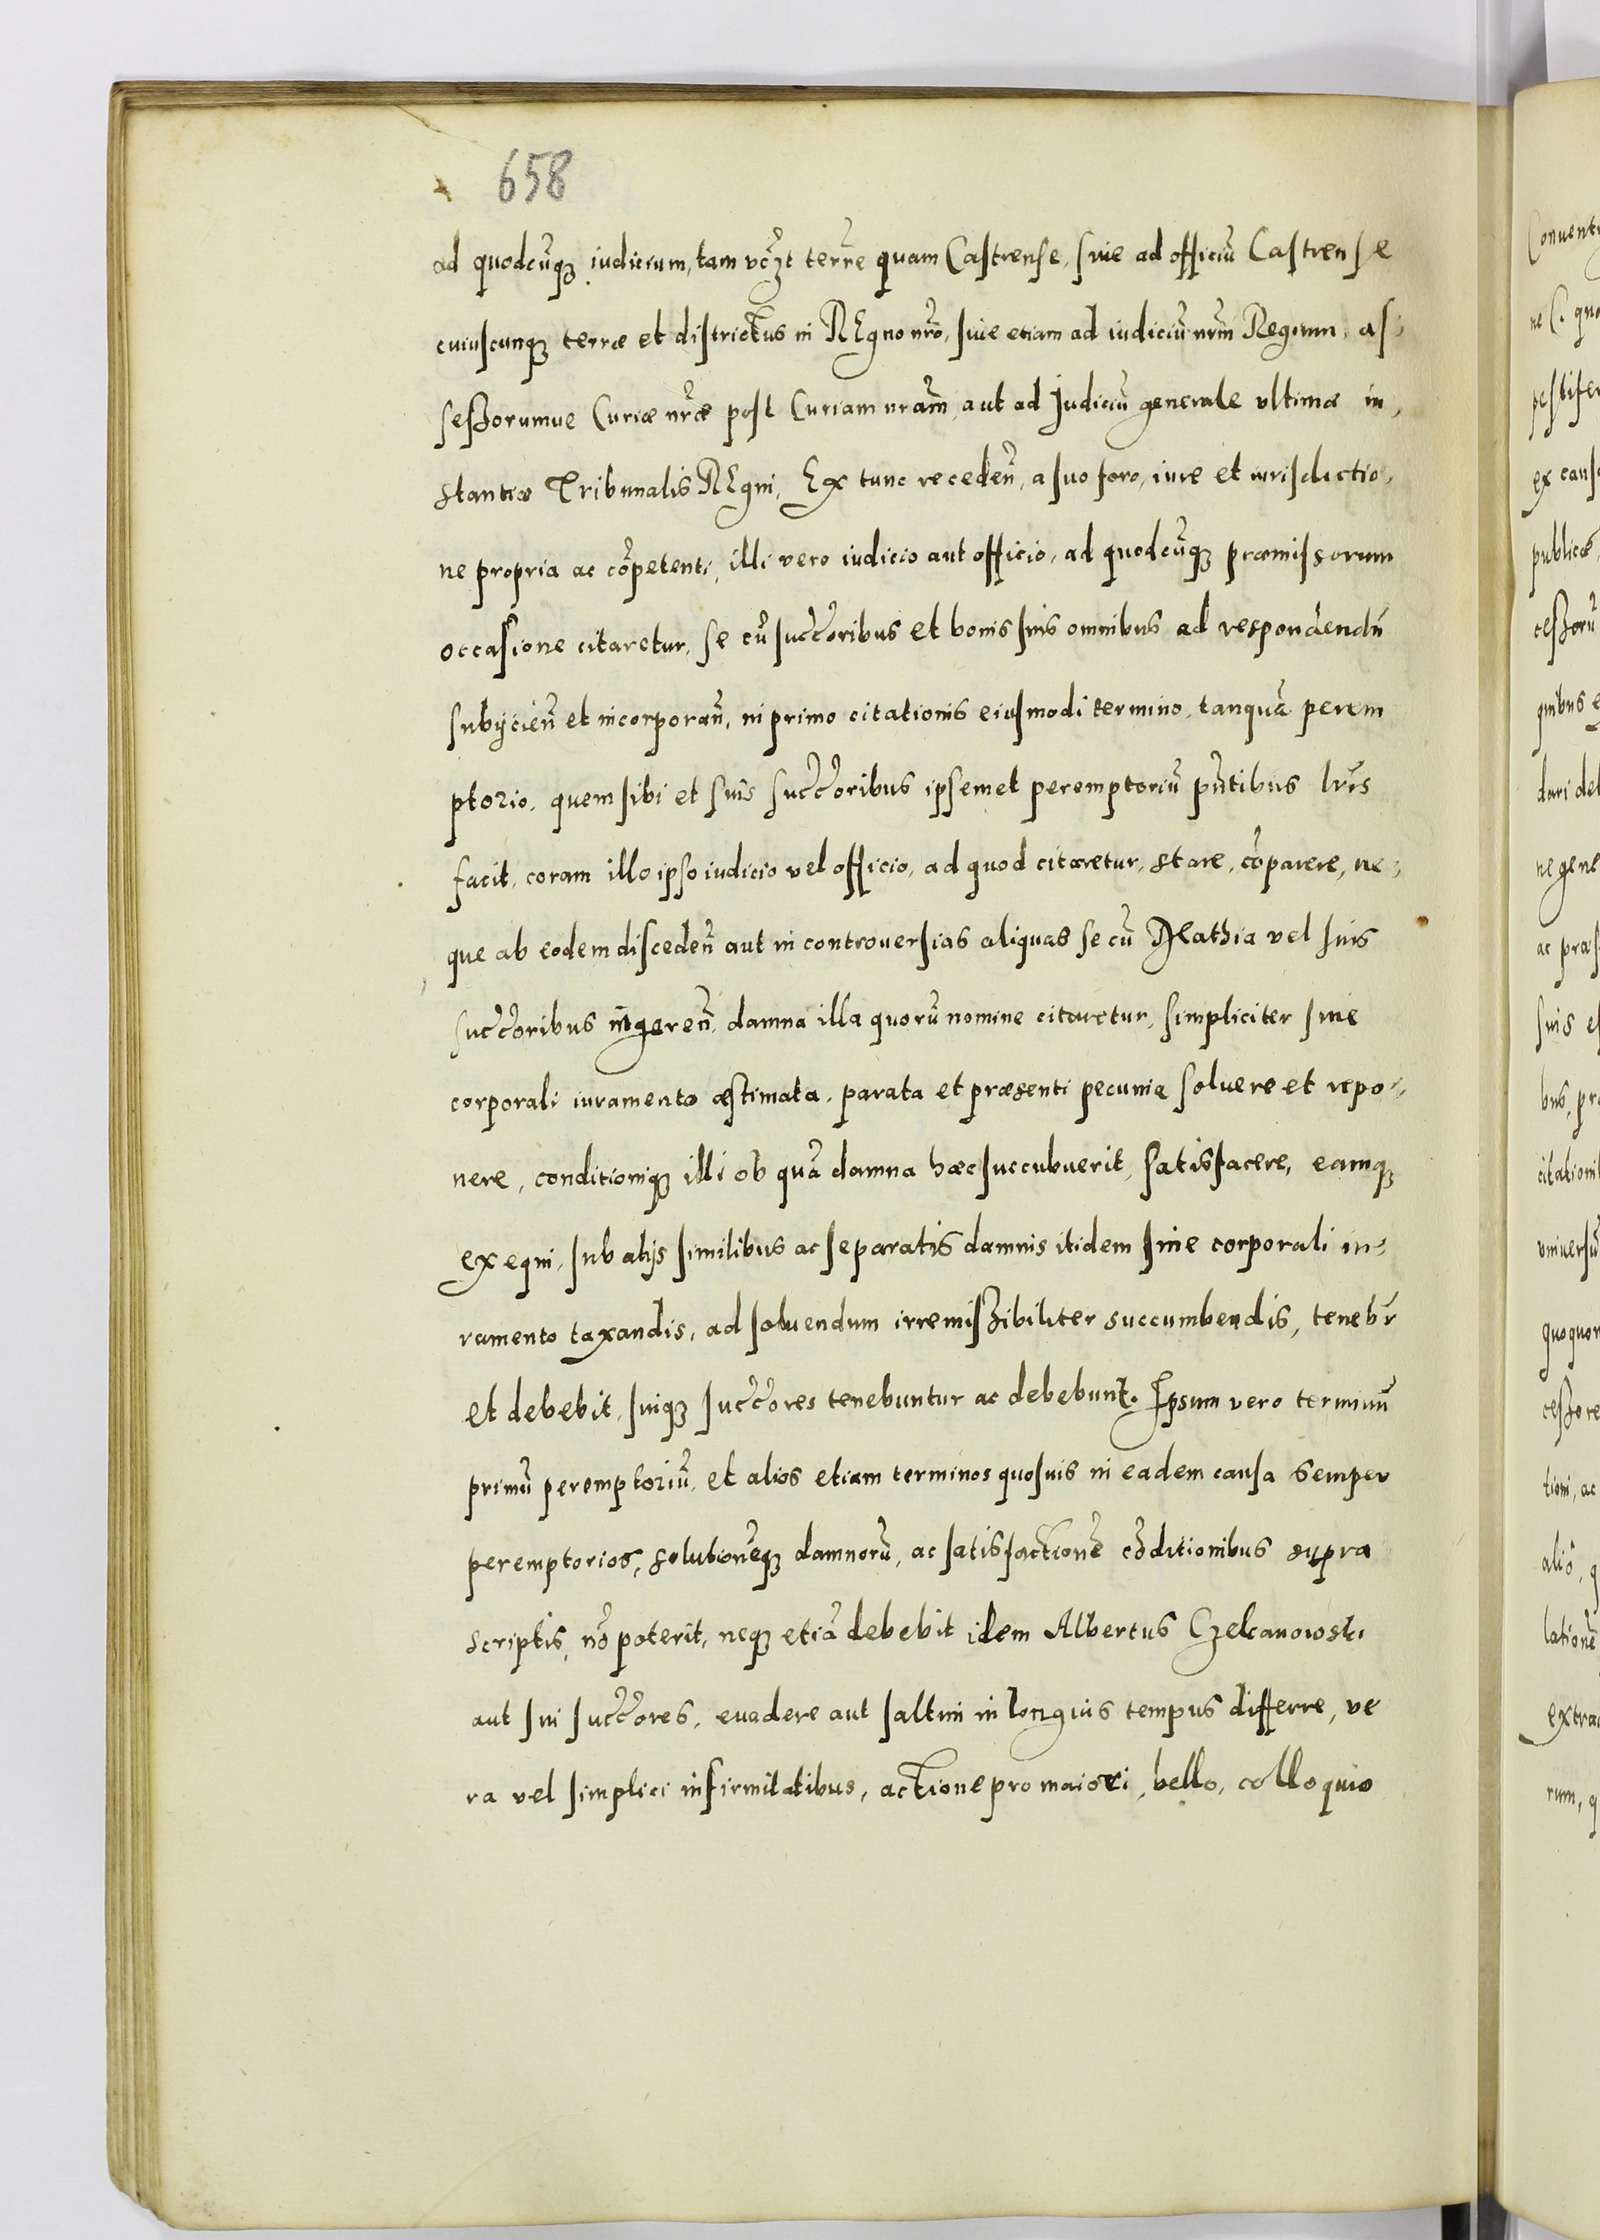 658
ad quodcūq₃ iudicium, tam vc̃zt terrre quam Castrense, siue ad officiũ Castrense
cuiuscunq₃ terræ et districtus in REgno nr̃o, siue etiam ad iudiciũ nr̃m Regium, as-
seßorumue Curiæ nr̃æ post Curiam nr̃am aut ad Judiciũ generale vltimæ in-
stantiæ Tribunalis REgni, Ex tunc recedeñ, a suo foro, iure et iurisdictio-
ne propria ac cõpetenti, illi vero iudicio aut officio, ad quodcũq₃ præmissorum
occasione citaretur, se cũ succ̃oribus et bonis suis omnibus ad respondendũ
subijcieñ et incorporañ, in primo citationis eiusmodi termino, tanquã perem
ptorio, quem sibi et suis succ̃oribus ipsemet peremptoriũ pñtibus lr̃is
facit, coram illo ipso iudicio vel officio, ad quod citaretur, stare, cõparere, ne-
que ab eodem discedeñ aut in controuersias aliquas se cũ Mathia vel suis
succ̃oribus ingereñ, damna illa quorũ nomine citaretur, simpliciter sine
corporali iuramento æstimata, parata et præsenti pecunia soluere et repo-
nere, conditioniq₃ illi ob quã damna hæc succubuerit, satisfacere, eamq₃
exequi, sub alijs similibus ac separatis damnis itidem sine corporali iu-
ramento taxandis, ad soluendum irremißibiliter succumbendis, tenebr̃
et debebit, suiq₃ succ̃ores tenebuntur ac debebunt. Ipsum vero terminũ
primũ peremptoriũ, et alios etiam terminos quosuis in eadem causa semper
peremptorios, solutionẽq₃ damnorũ, ac satisfactionẽ cõditionibus supra
scriptis, nõ poterit, neq₃ etiã debebit idem Albertus Czekanowski
aut sui succ̃ores, euadere aut saltim in longius tempus differre, ve
ra vel simplici infirmitatibus, actione pro maiori, bello, colloquio
Conuent
pestifer
ex caus
publicæ
ceßorũ
quibus e
dari deb
ne gene
ac præs
suis e
bus, pr
citationi
vniuersũ
quoquor
ceßore
tioni, ac
aliõ, q
lationẽ
extra
rum, q